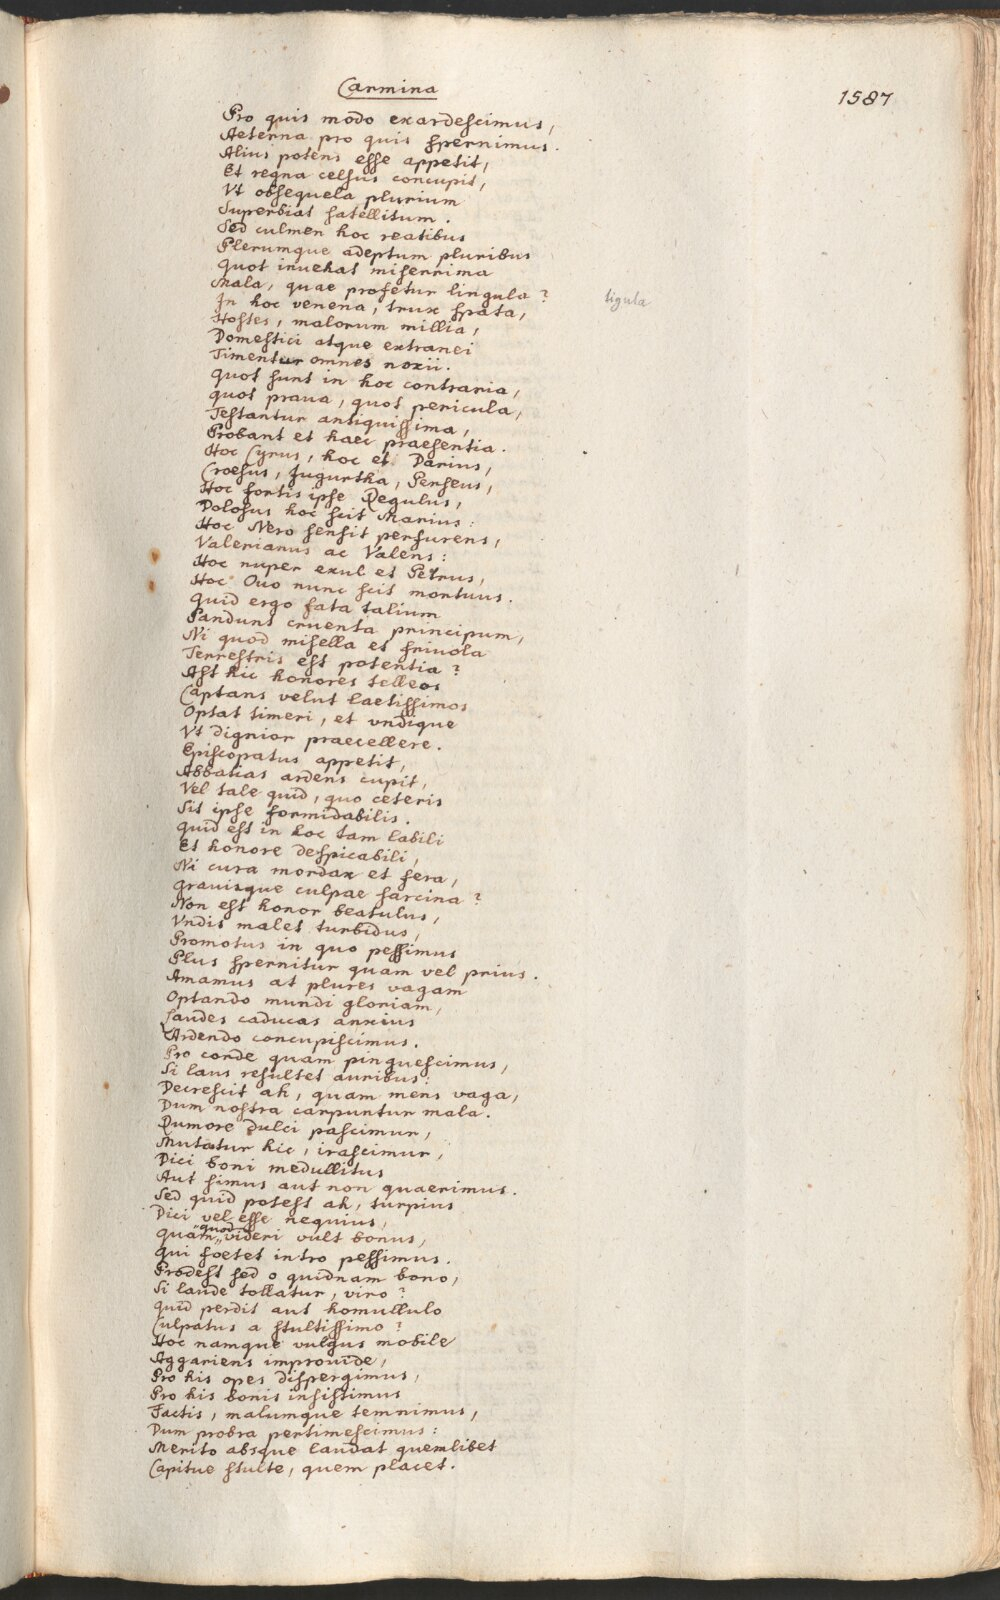 Carmina
1587
Pro quis modo exardescimus,
Aeterna pro quis spernimus.
Alius potens esse appetit,
Et regna celsus concupit,
Vt obsequela plurium
Superbiat satellitum.
Sed culmen hoc reatibus
Plerumque adeptum pluribus
Quot inuehat miserrima
Mala, quae profetur lingula?
ligula
In hoc venena, trux spata,
Hostes, malorum millia,
Domestici atque extranei
Timentur omnes noxii.
Quot sunt in hoc contraria,
Quot praua, quot pericula,
Testantur antiquissima,
Probant et haec praesentia.
Hoc Cyrus, hoc et Darius,
Croesus, Jugurtha, Perseus,
Hoc fortis ipse Regulus,
Dolosus hoc scit Marius:
Hoc Nero sensit perfurens,
Valerianus ac Valens:
Hoc nuper exul et Petrus,
Hoc Ouo nunc scit mortuus.
Quid ergo fata talium
Pandunt cruenta principum,
Ni quod misella et friuola
Terrestris est potentia?
Ast hic honores telleos
Captans velut laetissimos
Optat timeri, et vndique
Vt dignior praecellere.
Episcopatus appetit,
Abbatias ardens cupit,
Vel tale quid, quo ceteris
Sit ipse formidabilis.
Quid est in hoc tam labili
Et honore despicabili,
Ni cura mordax et fera,
Grauisque culpae sarcina?
Non est honor beatulus,
Vndis malet turbidus,
Promotus in quo pessimus
Plus spernitur quam vel prius.
Amamus at plures vagam
Optando mundi gloriam,
Laudes caducas anxius
Ardendo concupiscimus.
Pro corde quam pinguescimus,
Si laus resultet auribus:
Decrescit ah, quam mens vaga,
Dum nostra carpuntur mala.
Rumore dulci pascimur,
Mutatur hic, irascimur,
Dici boni medullitus
Aut simus aut non quaerimus.
Sed quid potest ah, turpius
Dici vel esse nequius,
Quam "quod" videri vult bonus,
Qui foetet intro pessimus.
Prodest sed o quidnam bono,
Si laude tollatur, viro?
Quid perdit aut homullulo
Culpatus a stultissimo?
Hoc namque vulgus mobile
Aggariens improuide,
Pro his opes dispergimus,
Pro his bonis insistimus
Factis, malumque temnimus,
Dum probra pertimescimus:
Merito absque laudat quemlibet
Capitue stulte, quem placet.